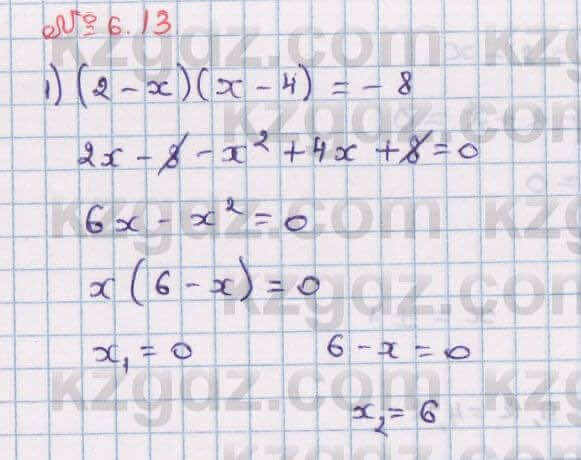 № 6.13
1) (2 - x)(x - 4) = - 8
2x - 8 - x² + 4x + 8 = 0
6x - x² = 0
x (6 - x) = 0
x₁ = 0 6 - x = 0
x₂ = 6
kzgdz.com
kzgdz.com
kzgdz.com
kzgdz.com
kzgdz.com